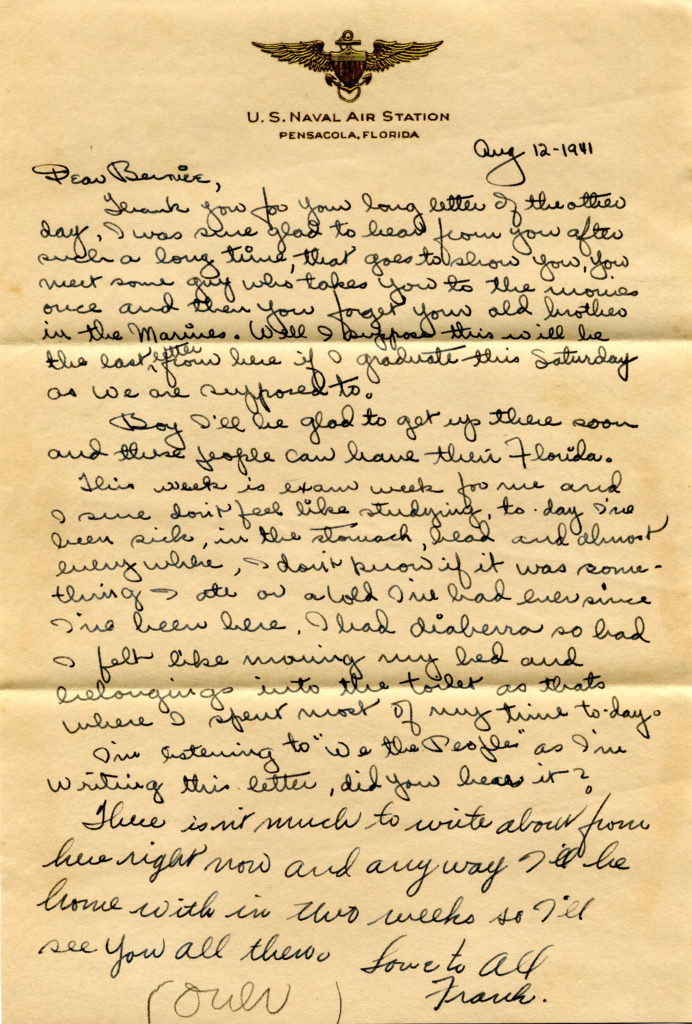 U. S. NAVAL AIR STATION
PENSACOLA, FLORIDA
Aug 12-1941
Dear Bernice,
Thank you for your long letter of the other
day, I was sure glad to hear from you after
such a long time, that goes to show you, you
meet some guy who takes you to the movies
once and then you forget your old brother
in the Marines. Well I suppose this will be
the last letter from here if I graduate this Saturday
as we are supposed to.
Boy I'll be glad to get up there soon
and these people can have their Florida.
This week is exam week for me and
I sure don't feel like studying, to-day I've
been sick, in the stomach, head and almost
every where, I don't know if it was some-
thing I ate or a cold I've had ever since
I've been here. I had diaherra so bad
I felt like moving my bed and
belongings into the toilet as thats
where I spent most of my time to-day.
I'm listening to "We the People" as I'm
writing this letter, did you hear it?
There isn't much to write about from
here right now and any way I'll be
home with in two weeks so I'll
see you all then. Love to All
Frank.
(Over)